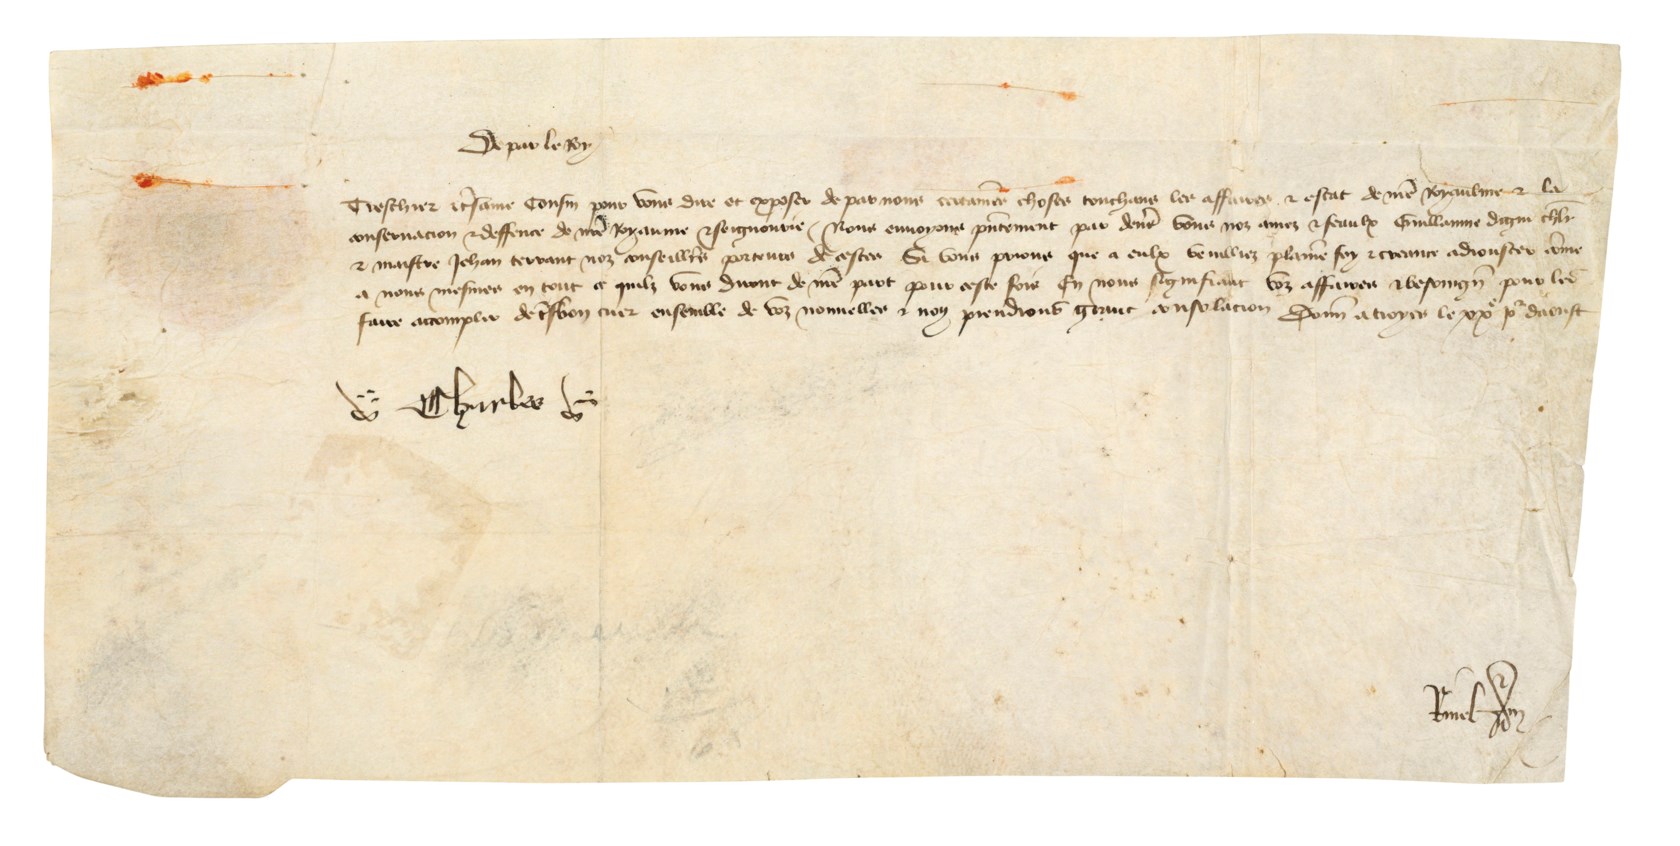 De par le Roy
Treschier et tresame Cousin pour vous dire et exposer de par nous certaines choses touchans les affaires & estat de nre Royaulme & la
conservacion & deffence de nre Royaume & seigneurie / Nous envoyons pntement par devs vous noz amez & feaulx Guillaume chlr
& maistre Jehan noz conseillrs porteurs de cestes Si vous prions que a eulx veuilliez plaine foy & creance adiouster cõme
a nous mesmes en tout ce quilz vous diront de nre part pour ceste fois En nous signifiant voz affaires & besoingn pour les
faire acomplir de tresbon cuer ensemble de voz nouvelles & noz y prendrons grant consolacion Donn a troyes le xxe jr daoust
Charles